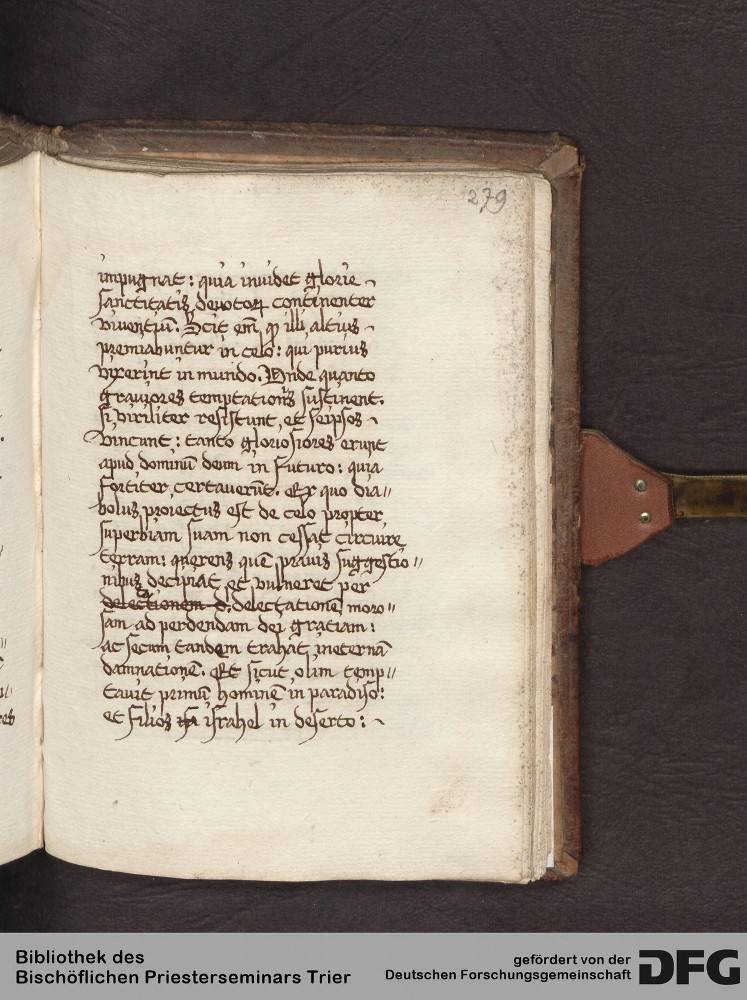 279
impugnat : quia inuidet glorie
sanctitatis deuotoꝝ continenter
viventiū. Scit em̄ ꝙ illi altius
premiabuntur in celo : qui purius
vixerint in mundo. Vnde quanto
grauiores temptationes sustinent.
si viriliter resistunt et seipsos
vincunt : tanto gloriosiores erunt
apud dominū deum in futuro : quia
fortiter certauerūt. Ex quo dia//
bolus proiectus est de celo propter
superbiam suam non cessat circuire
terram : querens quē prauis suggestio//
nibus decipiat et vulneret per
delectationem d. delectationē moro//
sam ad perdendam dei gratiam :
ac secum tandem trahat ineternā
damnationē. Et sicut olim temp//
tauit primū hominē in paradiso :
et filios israhel in deserto :
Bibliothek des
Bischöflichen Priesterseminars Trier
gefördert von der
Deutschen Forschungsgemeinschaft DFG